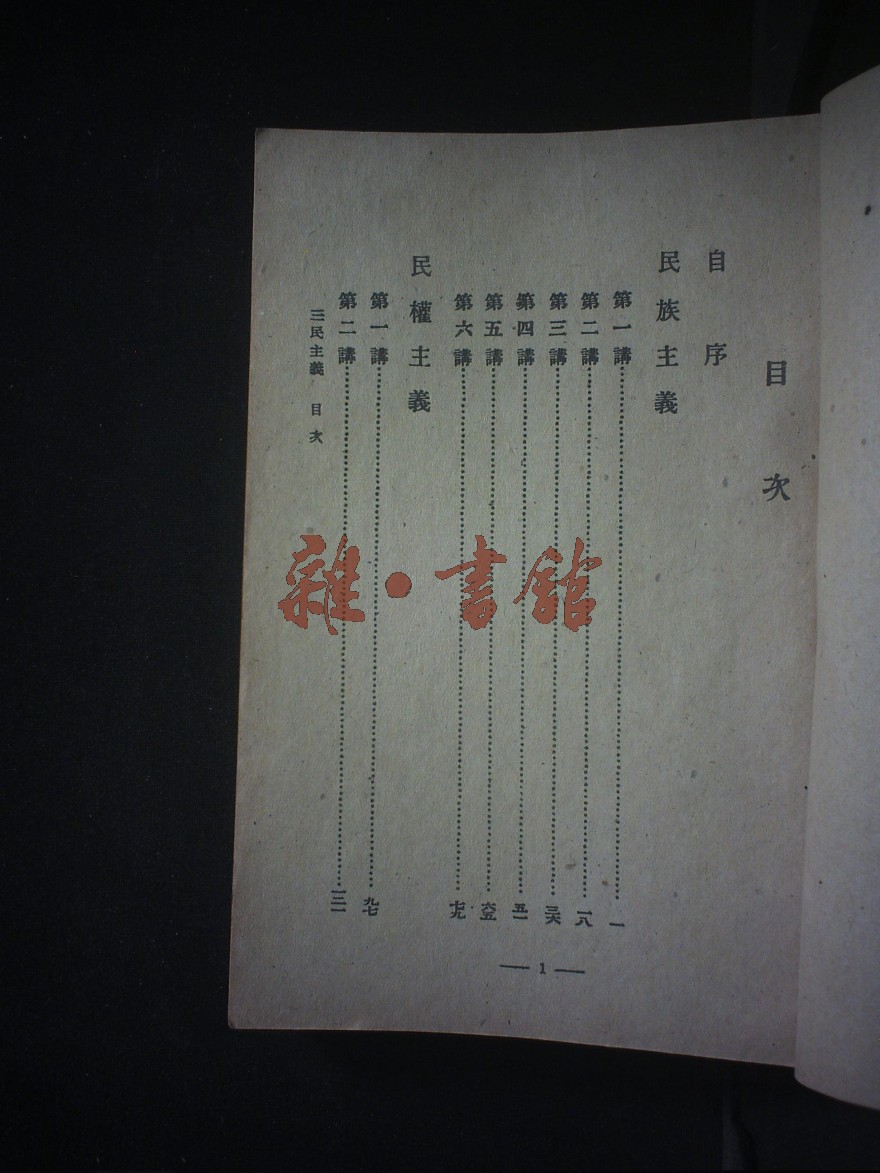 目次
自序
民族主義
第一講……一
第二講……一八
第三講……三六
第四講……五一
第五講……六五
第六講……七九
民權主義
第一講……九七
第二講……一三一
三民主義 目次
— 1 —
雜·書館